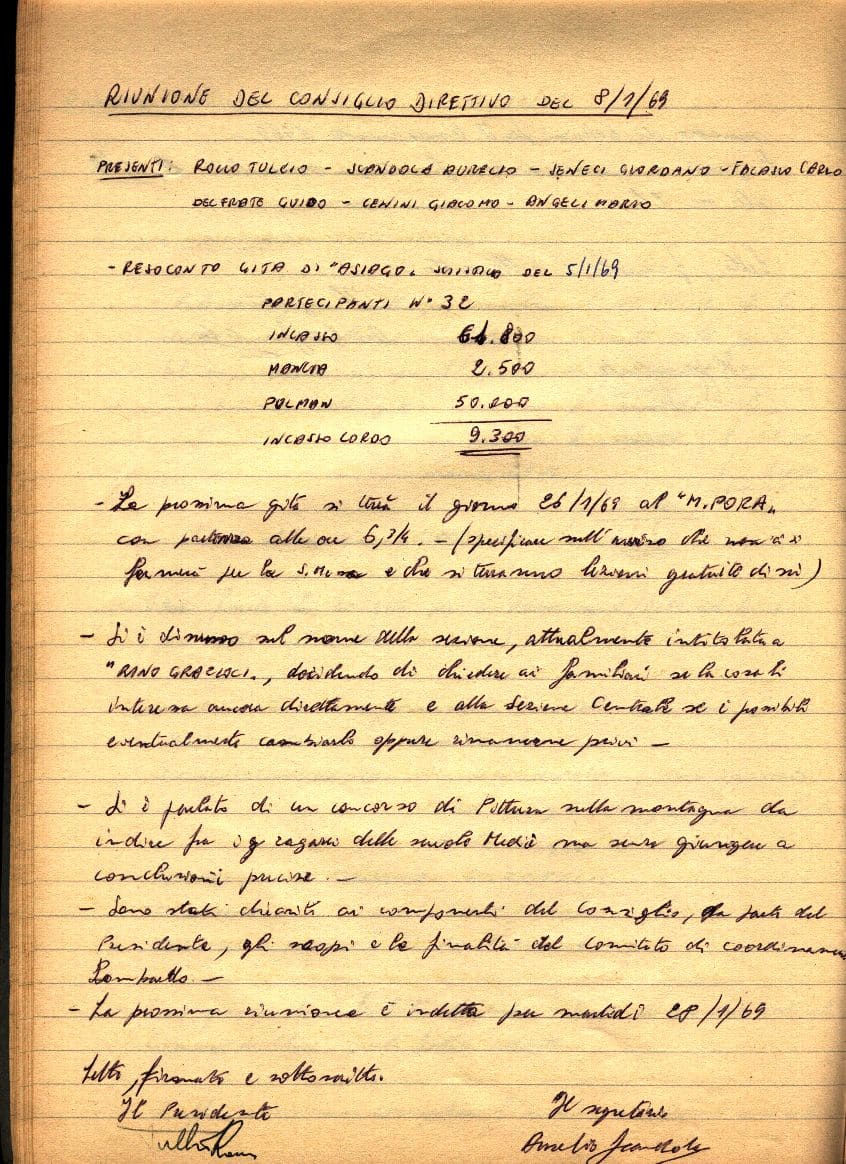 RIUNIONE DEL CONSIGLIO DIRETTIVO DEL 8/1/69
PRESENTI: ROLLO TULLIO - SCANDOLA AURELIO - SENECI GIORDANO - FALASCO CARLO
DEL FRATE GUIDO - CENINI GIACOMO - ANGELI MARIO
- RESOCONTO GITA DI "ASIAGO" DEL 5/1/69
PARTECIPANTI N° 32
INCASSO 61.800
MANCIA 2.500
PULMAN 50.000
INCASSO LORDO 9.300
- La prossima gita si terrà il giorno 26/1/69 al "M. PORA"
con partenza alle ore 6,3/4. - (specificare sull'avviso che non ci si
fermerà per la S. Messa e che si terranno lezioni gratuite di sci)
- Si è discusso sul nome della sezione, attualmente intitolata a
"RINO GRAZIOLI", decidendo di chiedere ai familiari se la cosa li
interessa ancora direttamente e alla Sezione Centrale se è possibile
eventualmente cambiarlo oppure rimanerne privi -
- Si è parlato di un concorso di Pittura sulla montagna da
indire fra i ragazzi delle scuole Medie ma senza giungere a
conclusioni precise. -
- Sono stati chiariti ai componenti del Consiglio, da parte del
Presidente, gli scopi e le finalità del Comitato di coordinamento
Lombardo. -
- La prossima riunione è indetta per martedì 28/1/69
Letto, firmato e sottoscritto.
Il Presidente Il segretario
Aurelio Scandola